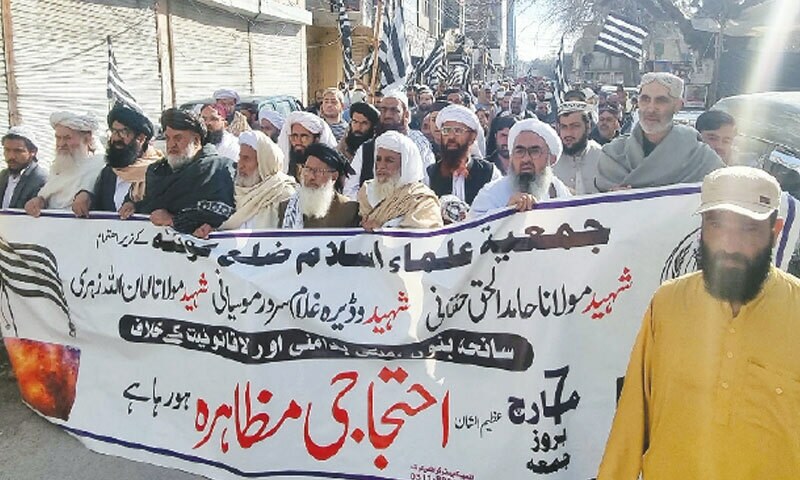 جمعیة علماء اسلام ضلع کوئٹہ کے زیر اہتمام
شہید مولانا حامد الحق حقانی شہید وڈیرہ غلام سرور موسیانی شہید مولانا امان اللہ زہری
سانحہ بنوں بدامنی اور لاقانونیت کے خلاف
7 مارچ بروز جمعہ
عظیم الشان احتجاجی مظاہرہ ہورہا ہے